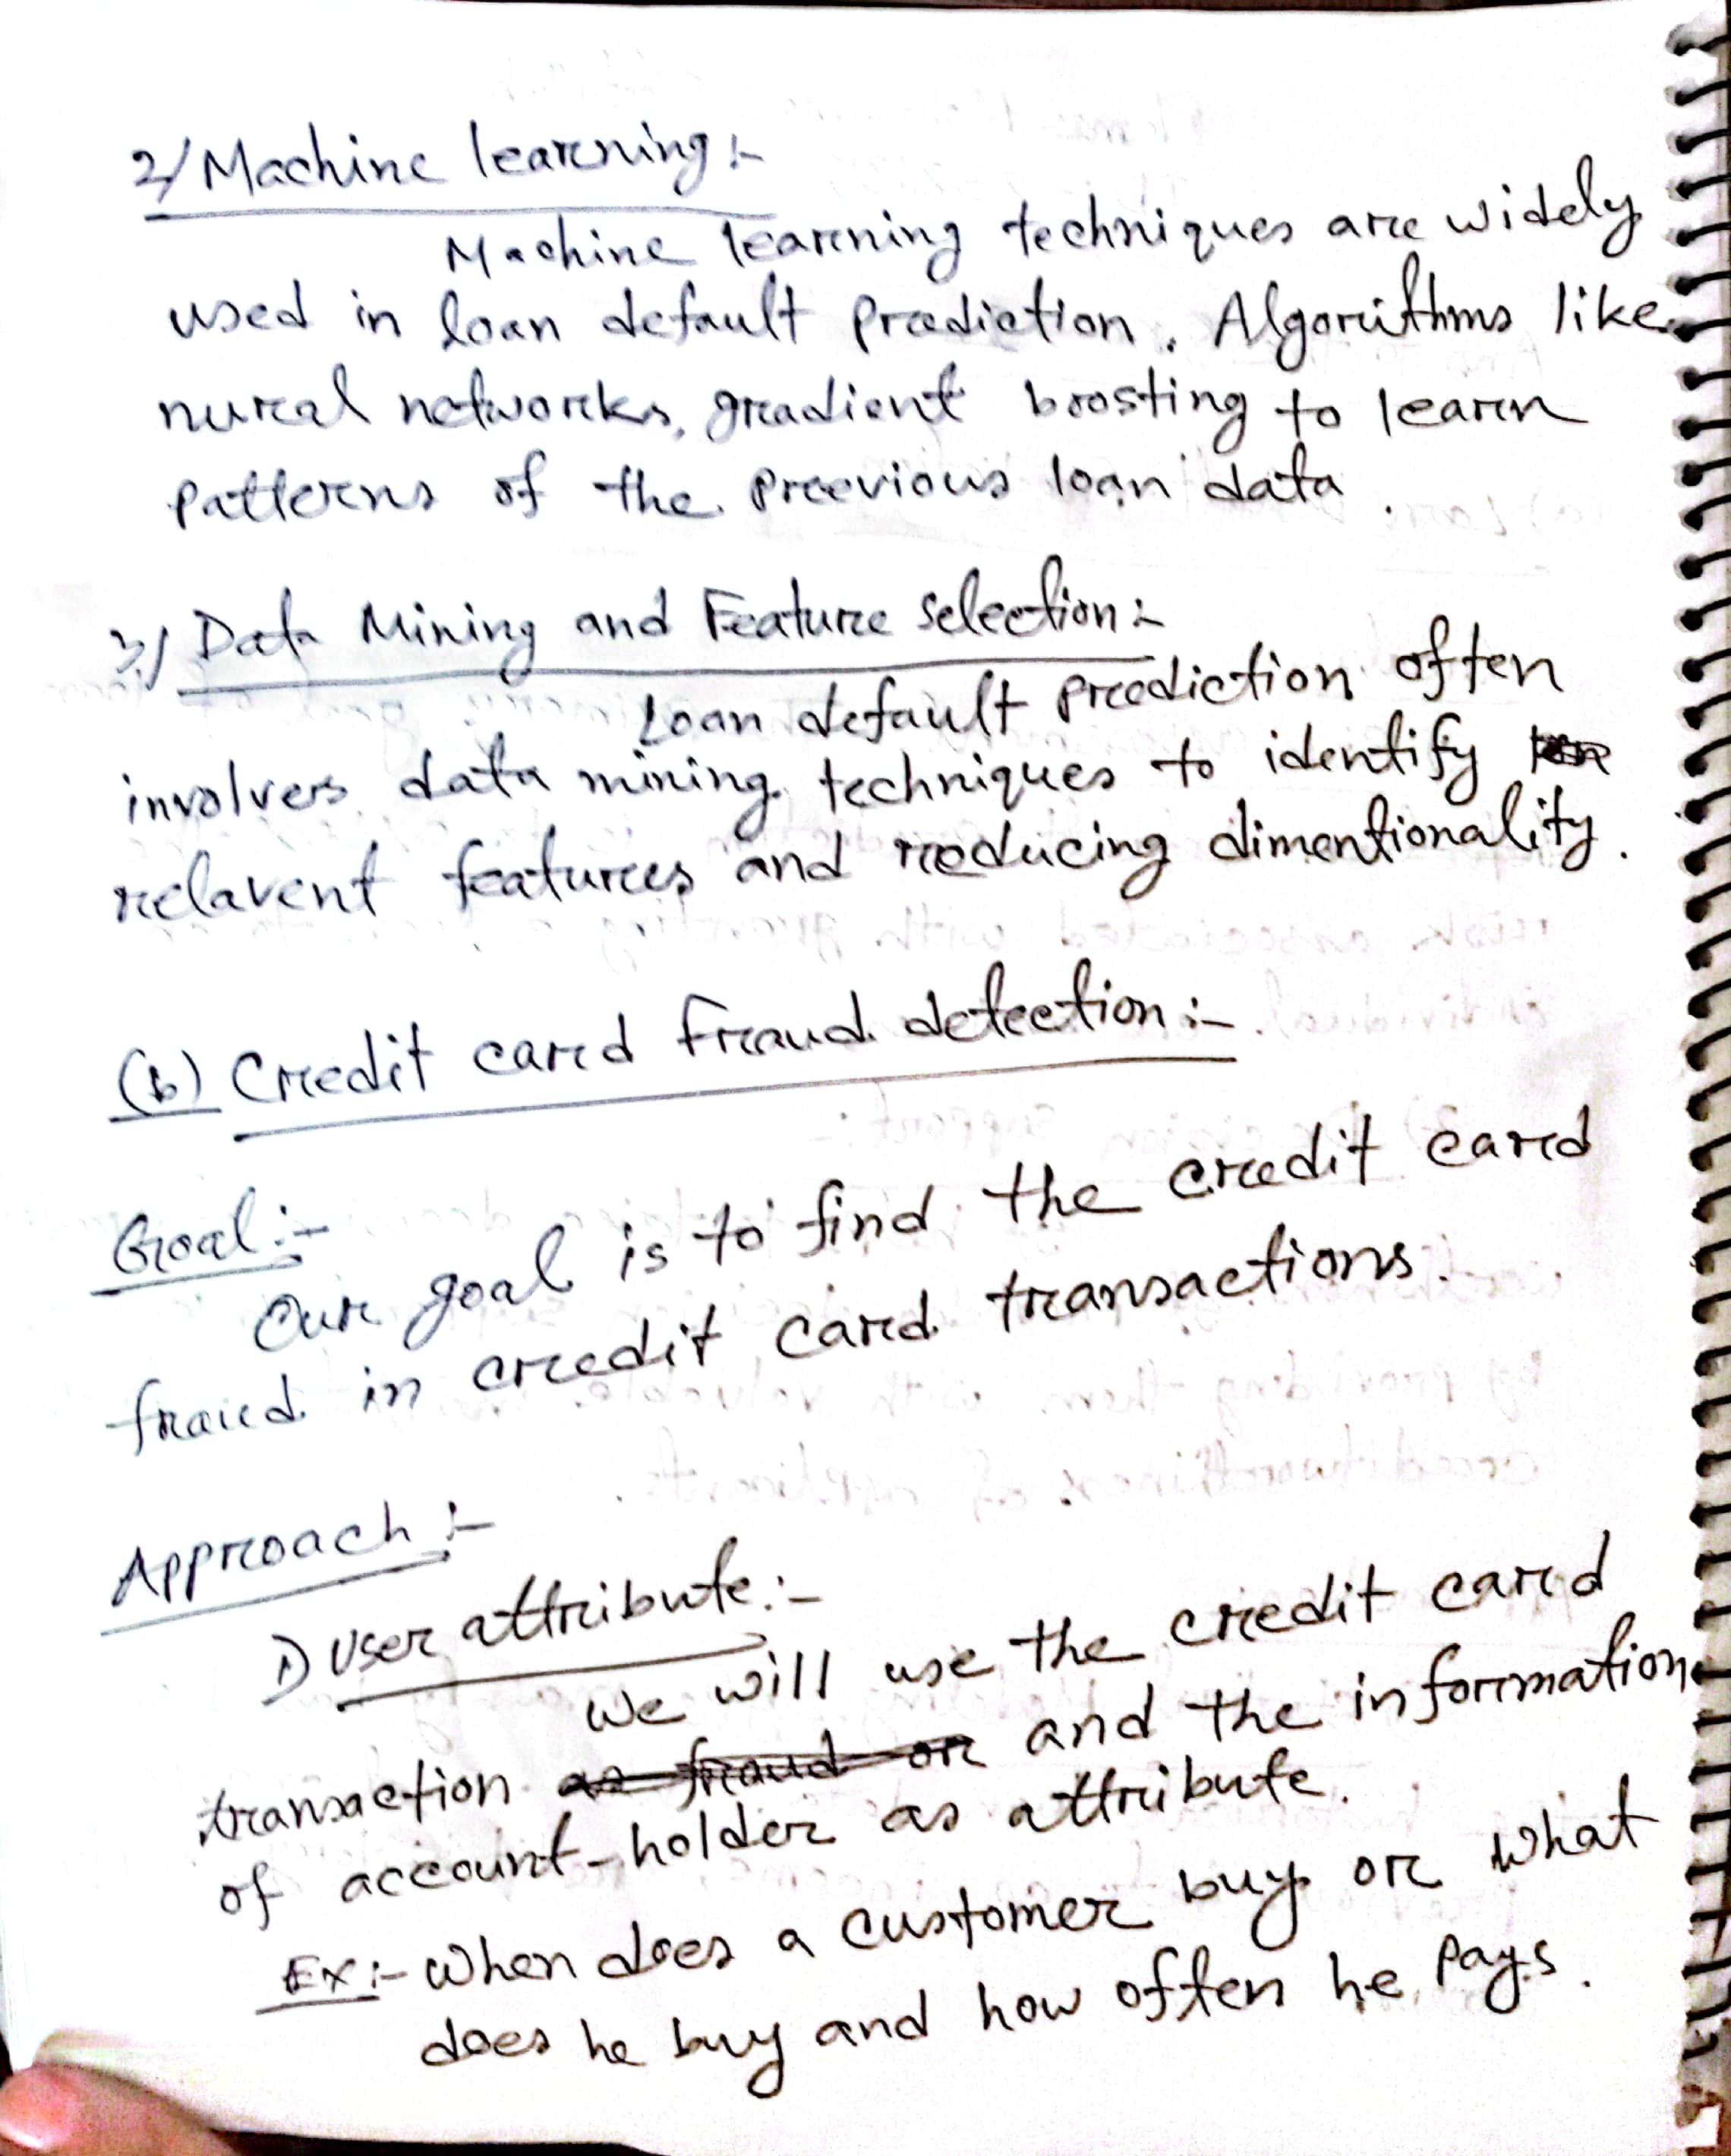 2/ Machine learning :-
Machine learning techniques are widely
used in loan default prediction. Algorithms like
nural networks, gradient boosting to learn
patterns of the previous loan data.
3./ Data Mining and Feature selection :-
Loan default prediction often
involvers data mining techniques to identify
relavent features and reducing dimentionality.
(b) Credit card fraud detection :-
Goal :-
Our goal is to find the credit card
fraud in credit card transactions.
Approach :-
1) User attribute :-
We will use the credit card
transaction as fraud or and the information
of account-holder as attribute.
Ex :- When does a customer buy or what
does he buy and how often he pays.